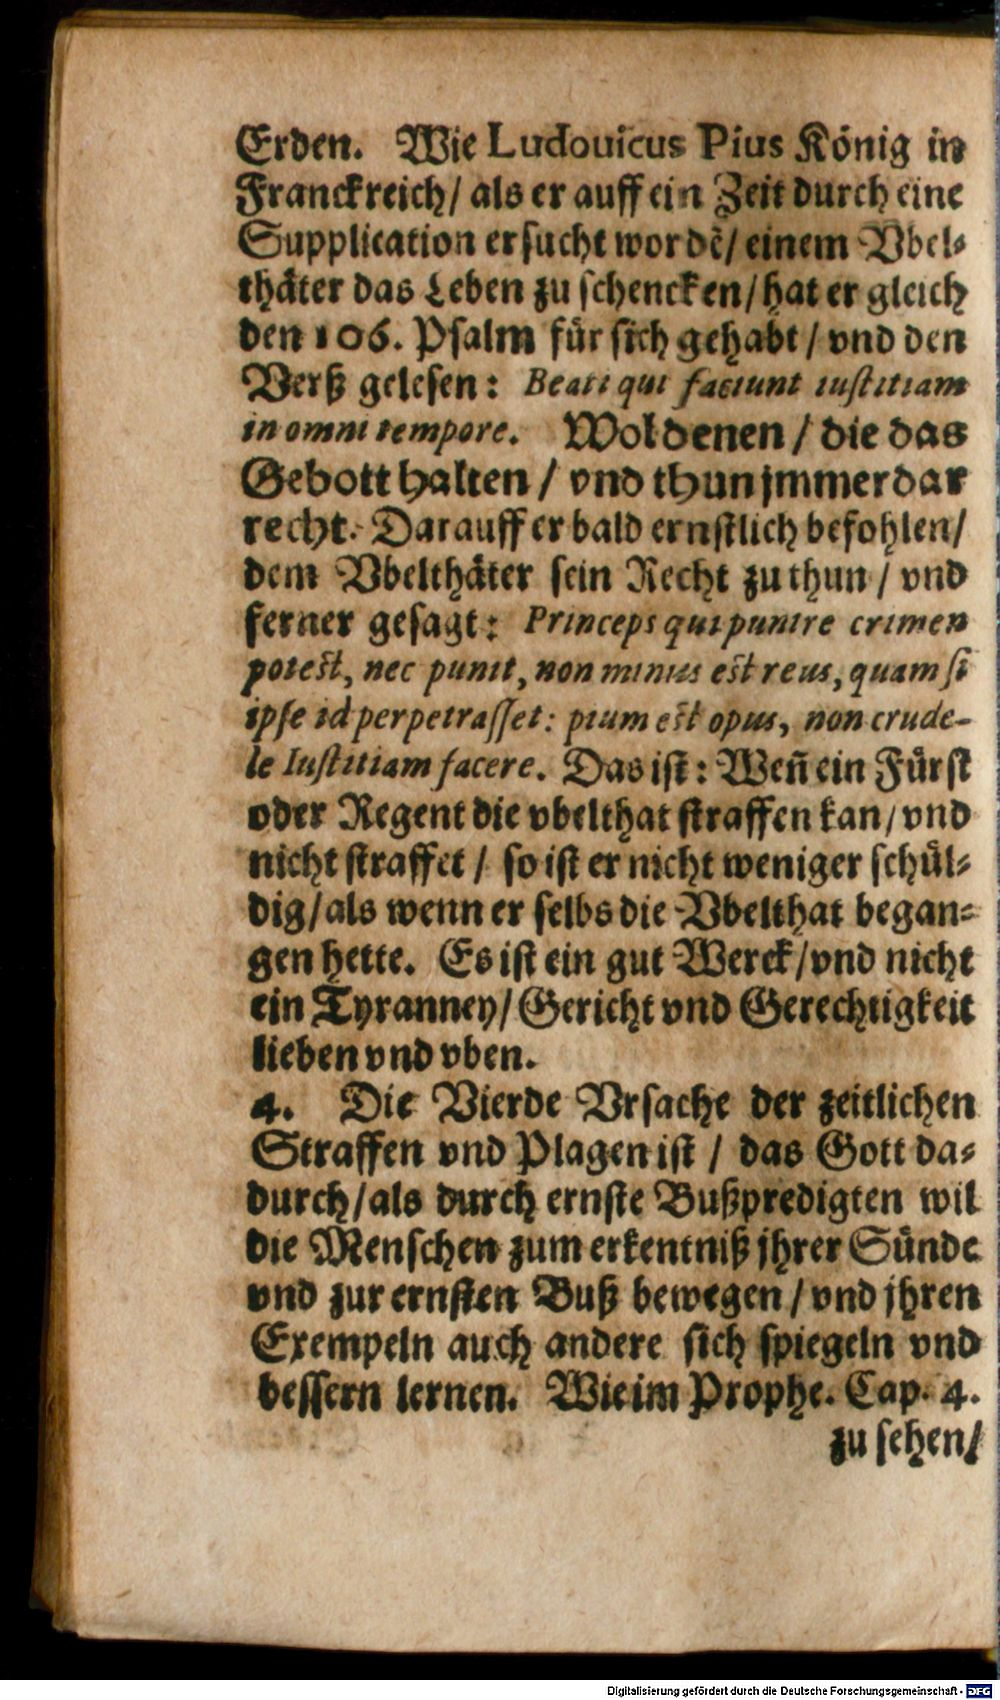 Erden. Wie Ludouicus Pius König in
Franckreich/ als er auff ein Zeit durch eine
Supplication ersucht wordē/ einem Vbel-
thäter das Leben zu schencken/ hat er gleich
den 106. Psalm für sich gehabt/ vnd den
Verß gelesen: Beati qui faciunt iustitiam
in omni tempore. Wol denen/ die das
Gebott halten/ vnd thun jmmerdar
recht. Darauff er bald ernstlich befohlen/
dem Vbelthäter sein Recht zu thun/ vnd
ferner gesagt: Princeps qui punire crimen
potest, nec punit, non minus est reus, quam si
ipse id perpetrasset: pium est opus, non crude-
le Iustitiam facere. Das ist: Weñ ein Fürst
oder Regent die vbelthat straffen kan/ vnd
nicht straffet/ so ist er nicht weniger schül-
dig/ als wenn er selbs die Vbelthat began-
gen hette. Es ist ein gut Werck/ vnd nicht
ein Tyranney/ Gericht vnd Gerechtigkeit
lieben vnd vben.
4. Die Vierde Vrsache der zeitlichen
Straffen vnd Plagen ist/ das Gott da-
durch/ als durch ernste Bußpredigten wil
die Menschen zum erkentniß jhrer Sünde
vnd zur ernsten Buß bewegen/ vnd jhren
Exempeln auch andere sich spiegeln vnd
bessern lernen. Wie im Prophe. Cap. 4.
zu sehen/
Digitalisierung gefördert durch die Deutsche Forschungsgemeinschaft - DFG